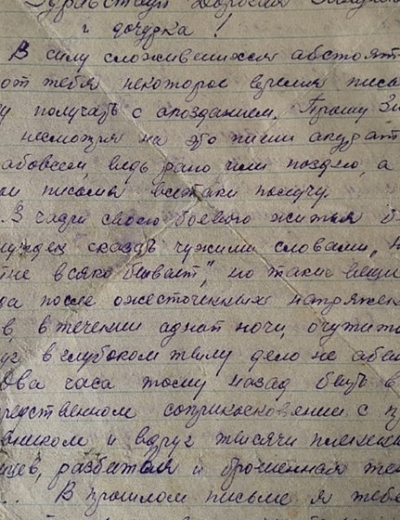 Здравствуй Дорогая
и дочурка!
В силу сложившихся абстоят
от тебя некоторое время пись
у получать с апозданием. Прошу Зи
несмотря на это пиши акурат
ведь рано или поздно, а
и письма всётаки получу.
В чади своего боевого житья
сказать чужими словами, "н
не всяко бывает", но такие вещи
а после ожесточенных напряжен
в, в течении аднай ночи, очутит
в глубоком тылу дело не абы
Два часа тому назад быть в
редственном соприкосновении с п
ником и вдруг тысячи пленен
цев, разбитая и брошенная тех
... В прошлом письме я тебе